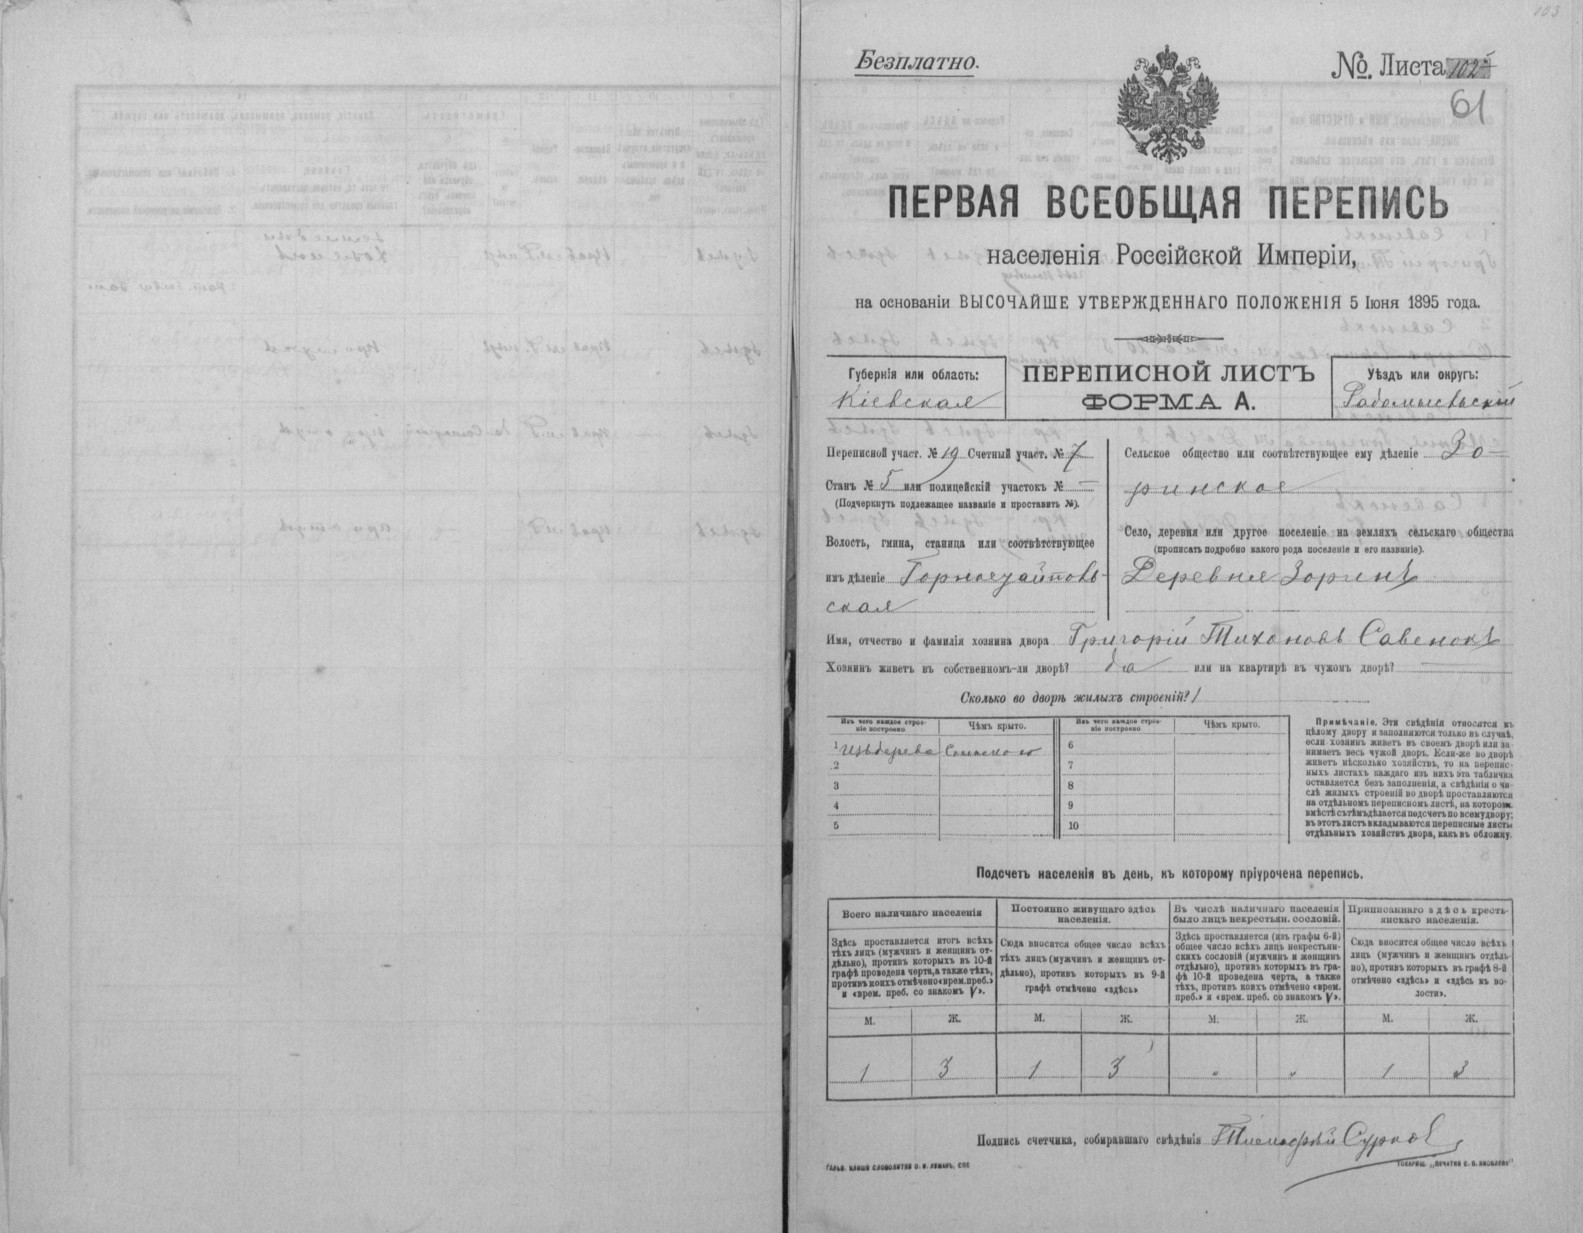 Безплатно.
№ Листа 102
61
ПЕРВАЯ ВСЕОБЩАЯ ПЕРЕПИСЬ
населенія Россійской Имперіи,
на основаніи ВЫСОЧАЙШЕ УТВЕРЖДЕННАГО ПОЛОЖЕНІЯ 5 Іюня 1895 года.
Губернія или область:
Кіевская
ПЕРЕПИСНОЙ ЛИСТЪ
ФОРМА А.
Уѣздъ или округъ:
Радомысльскій
Переписной участ. № 19 Счетный участ. № 7
Станъ № 5 или полицейскій участокъ № —
(Подчеркнуть подлежащее названіе и проставить №).
Волость, гмина, станица или соотвѣтствующее
имъ дѣленіе
ская
Сельское общество или соотвѣтствующее ему дѣленіе Зо-
ринское
Село, деревня или другое поселеніе на земляхъ сельскаго общества
(прописать подробно какого рода поселеніе и его названіе).
Деревня Зоринъ
Имя, отчество и фамилія хозяина двора Григорій Тихоновъ Савенокъ
Хозяинъ живетъ въ собственномъ-ли дворѣ? да или на квартирѣ въ чужомъ дворѣ? —
Сколько во дворѣ жилыхъ строеній? 1
Изъ чего каждое строе-
ніе построено
Чѣмъ крыто.
Изъ чего каждое строе-
ніе построено
Чѣмъ крыто.
1 Изъ дерева Соломою
2
3
4
5
6
7
8
9
10
Примѣчаніе. Эти свѣдѣнія относятся къ
цѣлому двору и заполняются только въ случаѣ,
если хозяинъ живетъ въ своемъ дворѣ или за-
нимаетъ весь чужой дворъ. Если-же во дворѣ
живетъ нѣсколько хозяйствъ, то на перепис-
ныхъ листахъ каждаго изъ нихъ эта табличка
оставляется безъ заполненія, а свѣдѣнія о чи-
слѣ жилыхъ строеній во дворѣ проставляются
на отдѣльномъ переписномъ листѣ, на которомъ
вмѣстѣ съ тѣмъ дѣлается подсчетъ по всему двору;
въ этотъ листъ вкладываются переписные листы
отдѣльныхъ хозяйствъ двора, какъ въ обложку.
Подсчетъ населенія въ день, къ которому пріурочена перепись.
Всего наличнаго населенія
Здѣсь проставляется итогъ всѣхъ
тѣхъ лицъ (мужчинъ и женщинъ от-
дѣльно), противъ которыхъ въ 10-й
графѣ проведена черта, а также тѣхъ,
противъ коихъ отмѣчено «врем. преб.»
и «врем. преб. со знакомъ V».
Постоянно живущаго здѣсь
населенія.
Сюда вносится общее число всѣхъ
тѣхъ лицъ (мужчинъ и женщинъ от-
дѣльно), противъ которыхъ въ 9-й
графѣ отмѣчено «здѣсь»
Въ числѣ наличнаго населенія
было лицъ некрестьян. сословій.
Здѣсь проставляется (изъ графы 6-й)
общее число всѣхъ лицъ некрестьян-
скихъ сословій (мужчинъ и женщинъ
отдѣльно), противъ которыхъ въ гра-
фѣ 10-й проведена черта, а также
тѣхъ, противъ коихъ отмѣчено «врем.
преб.» и «врем. преб. со знакомъ V».
Приписаннаго здѣсь кресть-
янскаго населенія.
Сюда вносится общее число всѣхъ
лицъ (мужчинъ и женщинъ отдѣль-
но), противъ которыхъ въ графѣ 8-й
отмѣчено «здѣсь» и «здѣсь въ во-
лости».
М. Ж. М. Ж. М. Ж. М. Ж.
1 3 1 3 " " 1 3
Подпись счетчика, собиравшаго свѣдѣнія Тимофей